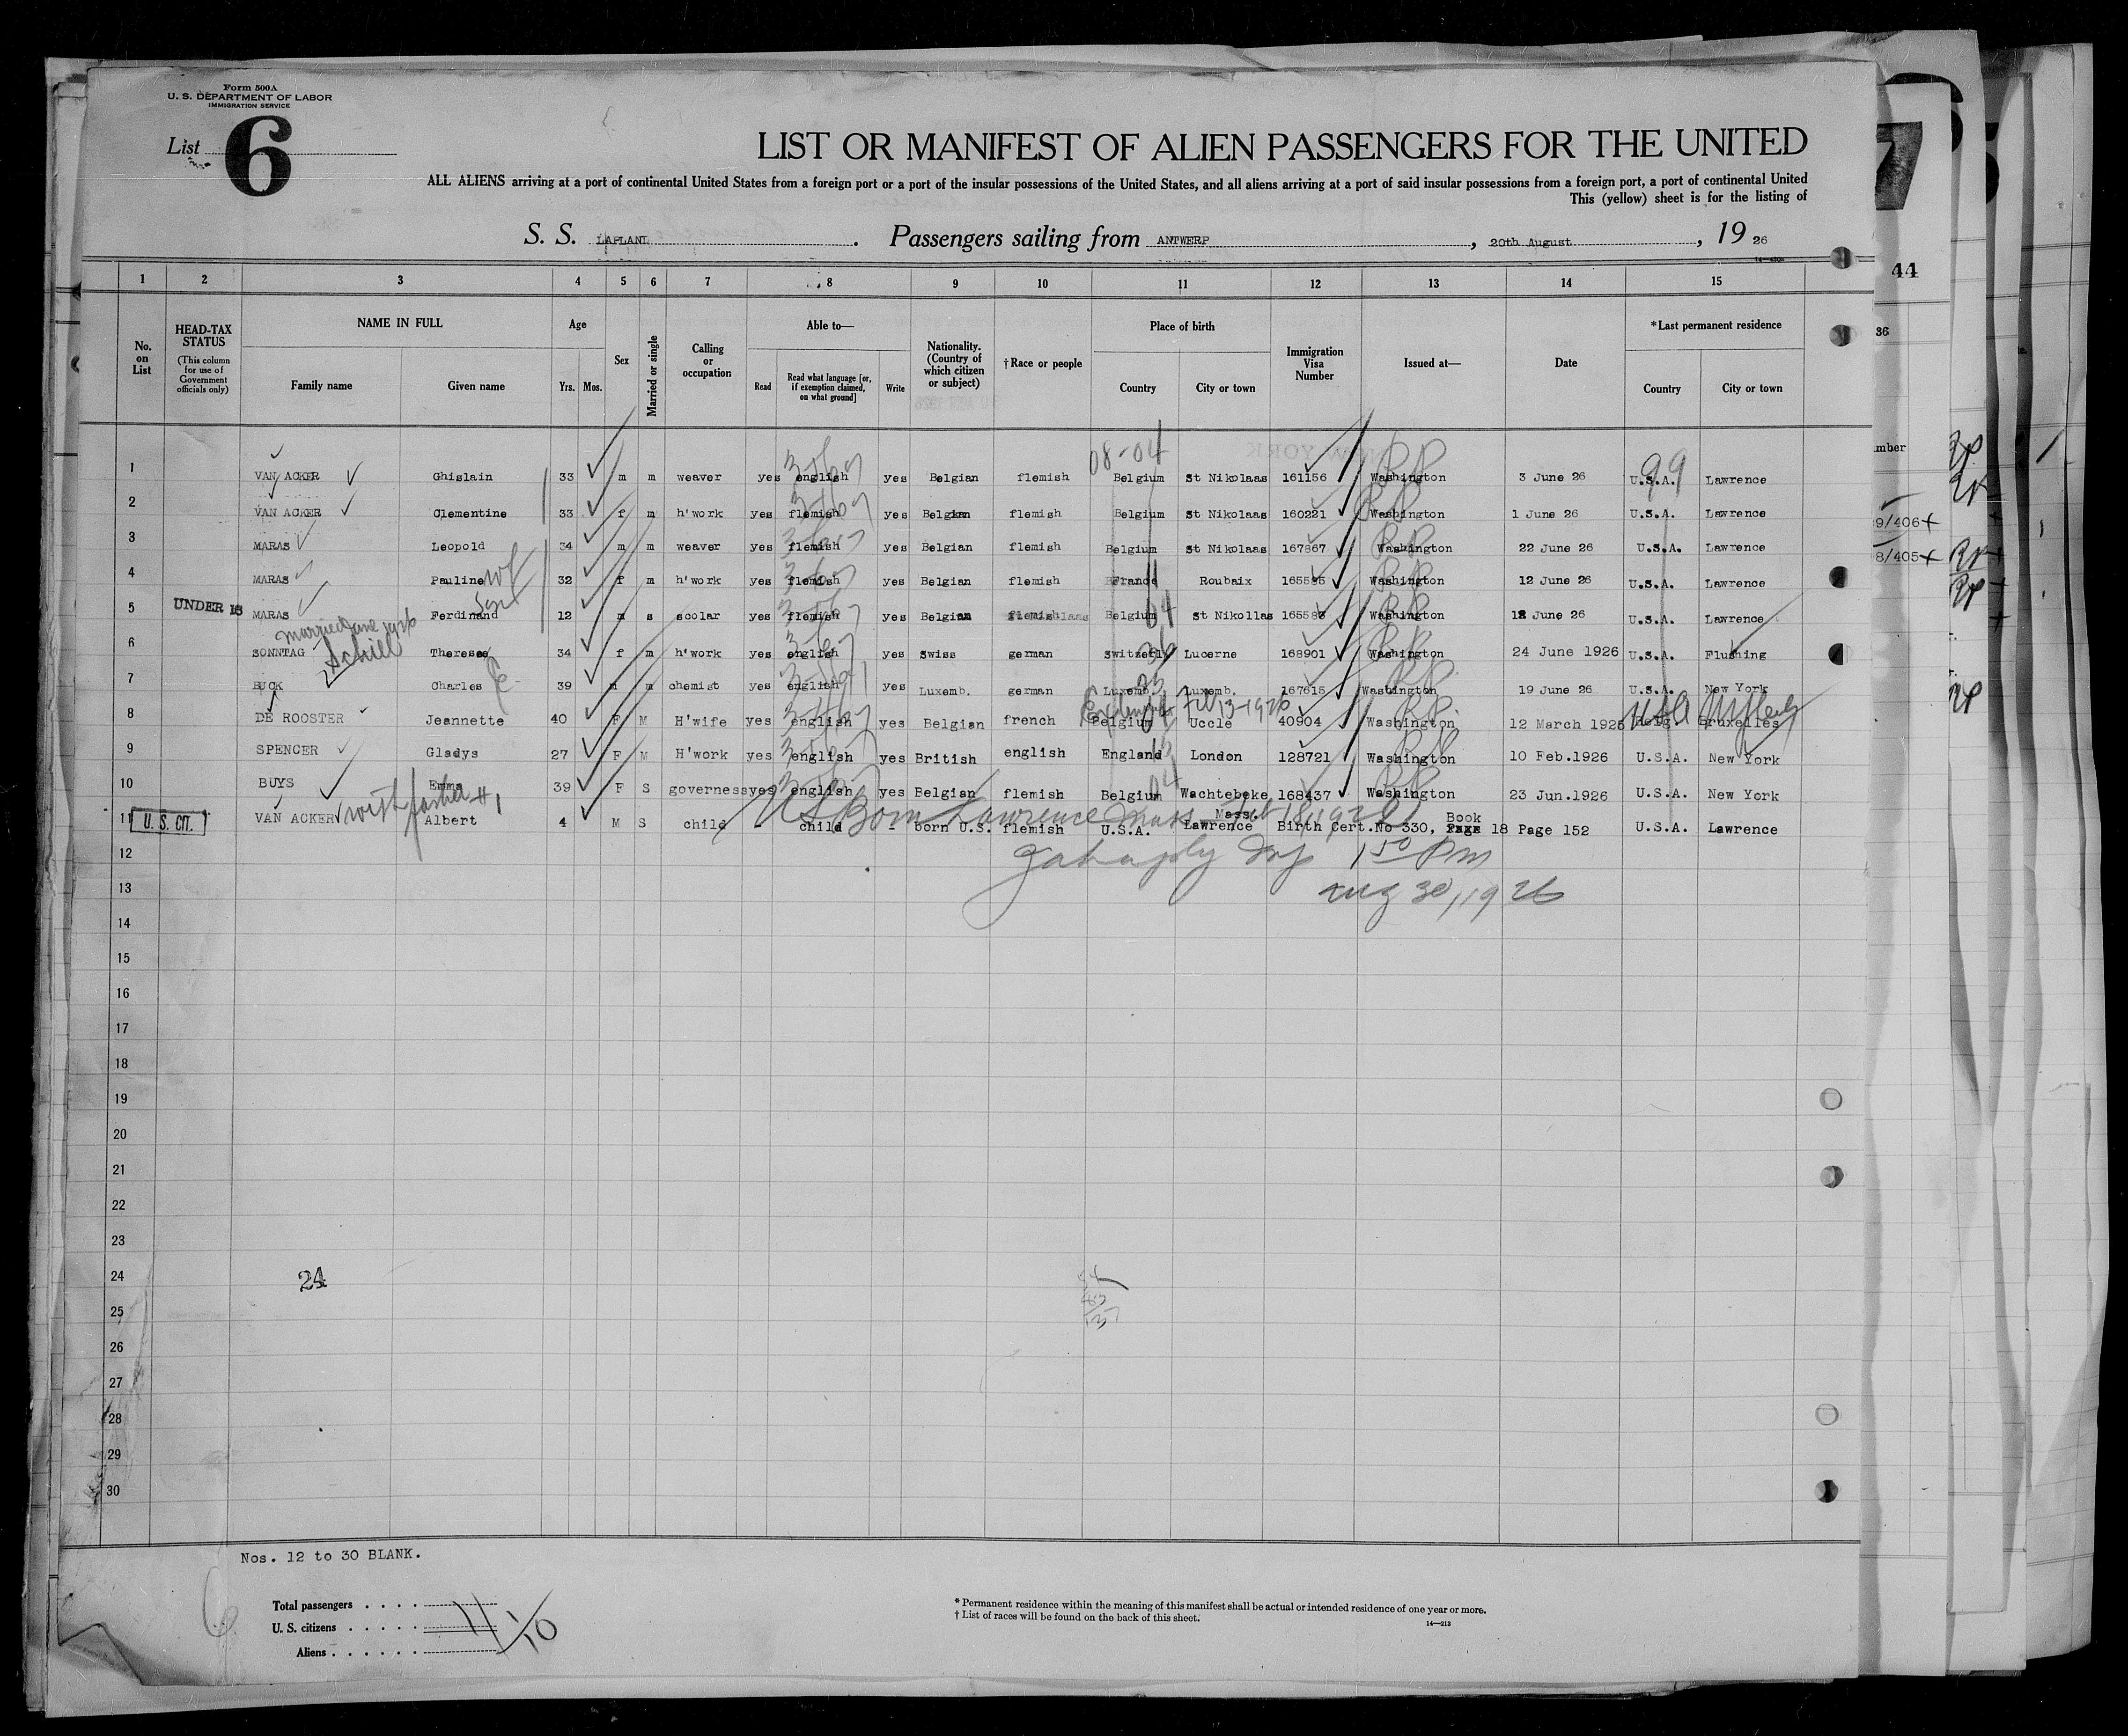 Form 500A
U. S. DEPARTMENT OF LABOR
IMMIGRATION SERVICE
List 6
LIST OR MANIFEST OF ALIEN PASSENGERS FOR THE UNITED
ALL ALIENS arriving at a port of continental United States from a foreign port or a port of the insular possessions of the United States, and all aliens arriving at a port of said insular possessions from a foreign port, a port of continental United
This (yellow) sheet is for the listing of
S. S. LAPLAND. Passengers sailing from ANTWERP, 20th August, 19 26
1 2 3 4 5 6 7 8 9 10 11 12 13 14 15
No. on List
HEAD-TAX STATUS (This column for use of Government officials only)
NAME IN FULL
Family name Given name
Age
Yrs. Mos.
Sex
Married or single
Calling or occupation
Able to—
Read Read what language [or, if exemption claimed, on what ground] Write
Nationality. (Country of which citizen or subject)
†Race or people
Place of birth
Country City or town
Immigration Visa Number
Issued at—
Date
*Last permanent residence
Country City or town
08-04 99
1 VAN ACKER Ghislain 33 m m weaver yes english yes Belgian flemish Belgium St Nikolaas 161156 Washington 3 June 26 U.S.A. Lawrence
2 VAN ACKER Clementine 33 f m h'work yes flemish yes Belgian flemish Belgium St Nikolaas 160221 Washington 1 June 26 U.S.A. Lawrence
3 MARAS Leopold 34 m m weaver yes flemish yes Belgian flemish Belgium St Nikolaas 167867 Washington 22 June 26 U.S.A. Lawrence
4 MARAS Pauline 32 f m h'work yes flemish yes Belgian flemish France Roubaix 165595 Washington 12 June 26 U.S.A. Lawrence
5 UNDER 16 MARAS Ferdinand 12 m s scolar yes flemish yes Belgian flemish Belgium St Nikollas Washington 12 June 26 U.S.A. Lawrence
married June 1926
Schill
6 SONNTAG Therese 34 f m h'work yes english yes Swiss german Lucerne 168901 Washington 24 June 1926 U.S.A. Flushing
7 BUCK Charles 39 m m chemist yes english yes Luxemb. german Luxemb. Luxemb. 167615 Washington 19 June 26 U.S.A. New York
Feb 13-1926
8 DE ROOSTER Jeannette 40 F M H'wife yes english yes Belgian french Belgium Uccle 40904 Washington 12 March 1925 Belg. Bruxelles
9 SPENCER Gladys 27 F M H'work yes english yes British english England London 128721 Washington 10 Feb.1926 U.S.A. New York
10 BUYS Emma 39 F S governess yes english yes Belgian flemish Belgium Wachtebeke 168437 Washington 23 Jun.1926 U.S.A. New York
with father #1
US Born Lawrence Mass
11 U. S. CIT. VAN ACKER Albert 4 M S child - child - born U.S. flemish U.S.A. Lawrence Mass. Birth Cert.No 330, Book 18 Page 152 U.S.A. Lawrence
12
13 Aug 30, 1926
14
15
16
17
18
19
20
21
22
23
24 24
25
26
27
28
29
30
Nos. 12 to 30 BLANK.
Total passengers . . . .
U. S. citizens . . . . .
Aliens . . . . . .
11/10
* Permanent residence within the meaning of this manifest shall be actual or intended residence of one year or more.
† List of races will be found on the back of this sheet.
14—213
7
44
36
9/406+
8/405+